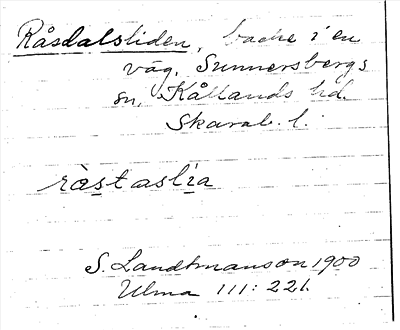 Råsdalsliden, backe i en
väg, Sunnersbergs
sn, Kållands hd.
Skarab. l.
råstaslia
S. Landtmanson 1900
Ulma 111:221.